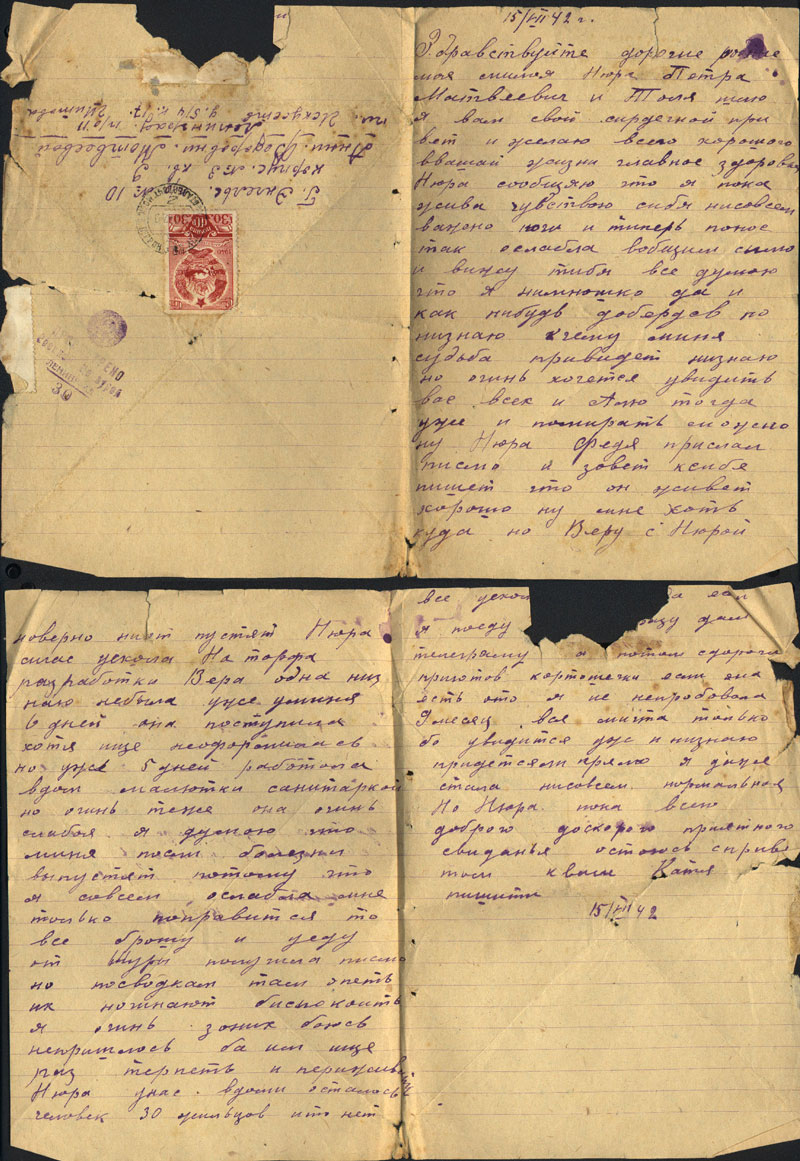 15/VII 42 г.
Здравствуйте дорогие родные
моя милая Нюра Петра
Матвеевич и Толя шлю
я вам свой сирдечной при
вет и желаю всего хорошого
ввашай жизни главное здоровья
Нюра сообщяю что я пока
жива чувствою сибя нисовсем
важно ноги и типерь понос
так ослабла вобщим сылю
и вижу тибя все думою
что я нимношко да и
как нибудь доберусь но
низнаю кчему миня
судьба привидет низнаю
но очинь хочется увидить
вас всех и Алю тогда
уже и помирать можно
ну Нюра Федя прислал
письмо и зовет ксибе
пишет что он живет
хорошо ну мне хоть
куда но Веру с Нюрой
Г. Энгельс
корпус. №3 кв. 9
Анн. Фёдоровн. Матвеевой
Ленинград
30
наверно нипустят Нюра
сичас уехала На торфа
разработки Вера одна низ
наю небыла уже уминя
6 дней она поступила
хотя ище неоформилась
но уже 5 дней работала
вдом малютки санитаркой
но очинь тежо она очинь
слабоя я думою что
миня посли болезни
выпустят потому что
я совсем ослабла мне
только поправится то
все брошу и уеду
от Шуры получила письмо
но посводкам там опеть
их начинают биспокоить
я очинь заних боюсь
непришлось ба им ище
раз терпеть и перижывать
Нюра унас вдоми осталось
человек 30 жильцов ито нет
все уехал
я поеду дам
телеграму а потом сдороги
приготов картошечки если она
есть ото я не непробовала
9 месяц вся мичта только
бо увидится уж и низнаю
придетсяли прямо я даже
стала нисовсем нормальноя
Но Нюра пока всего
доброго доскорого приятного
свиданья остоюсь сприве
том квам Катя
пишити
15/VII 42